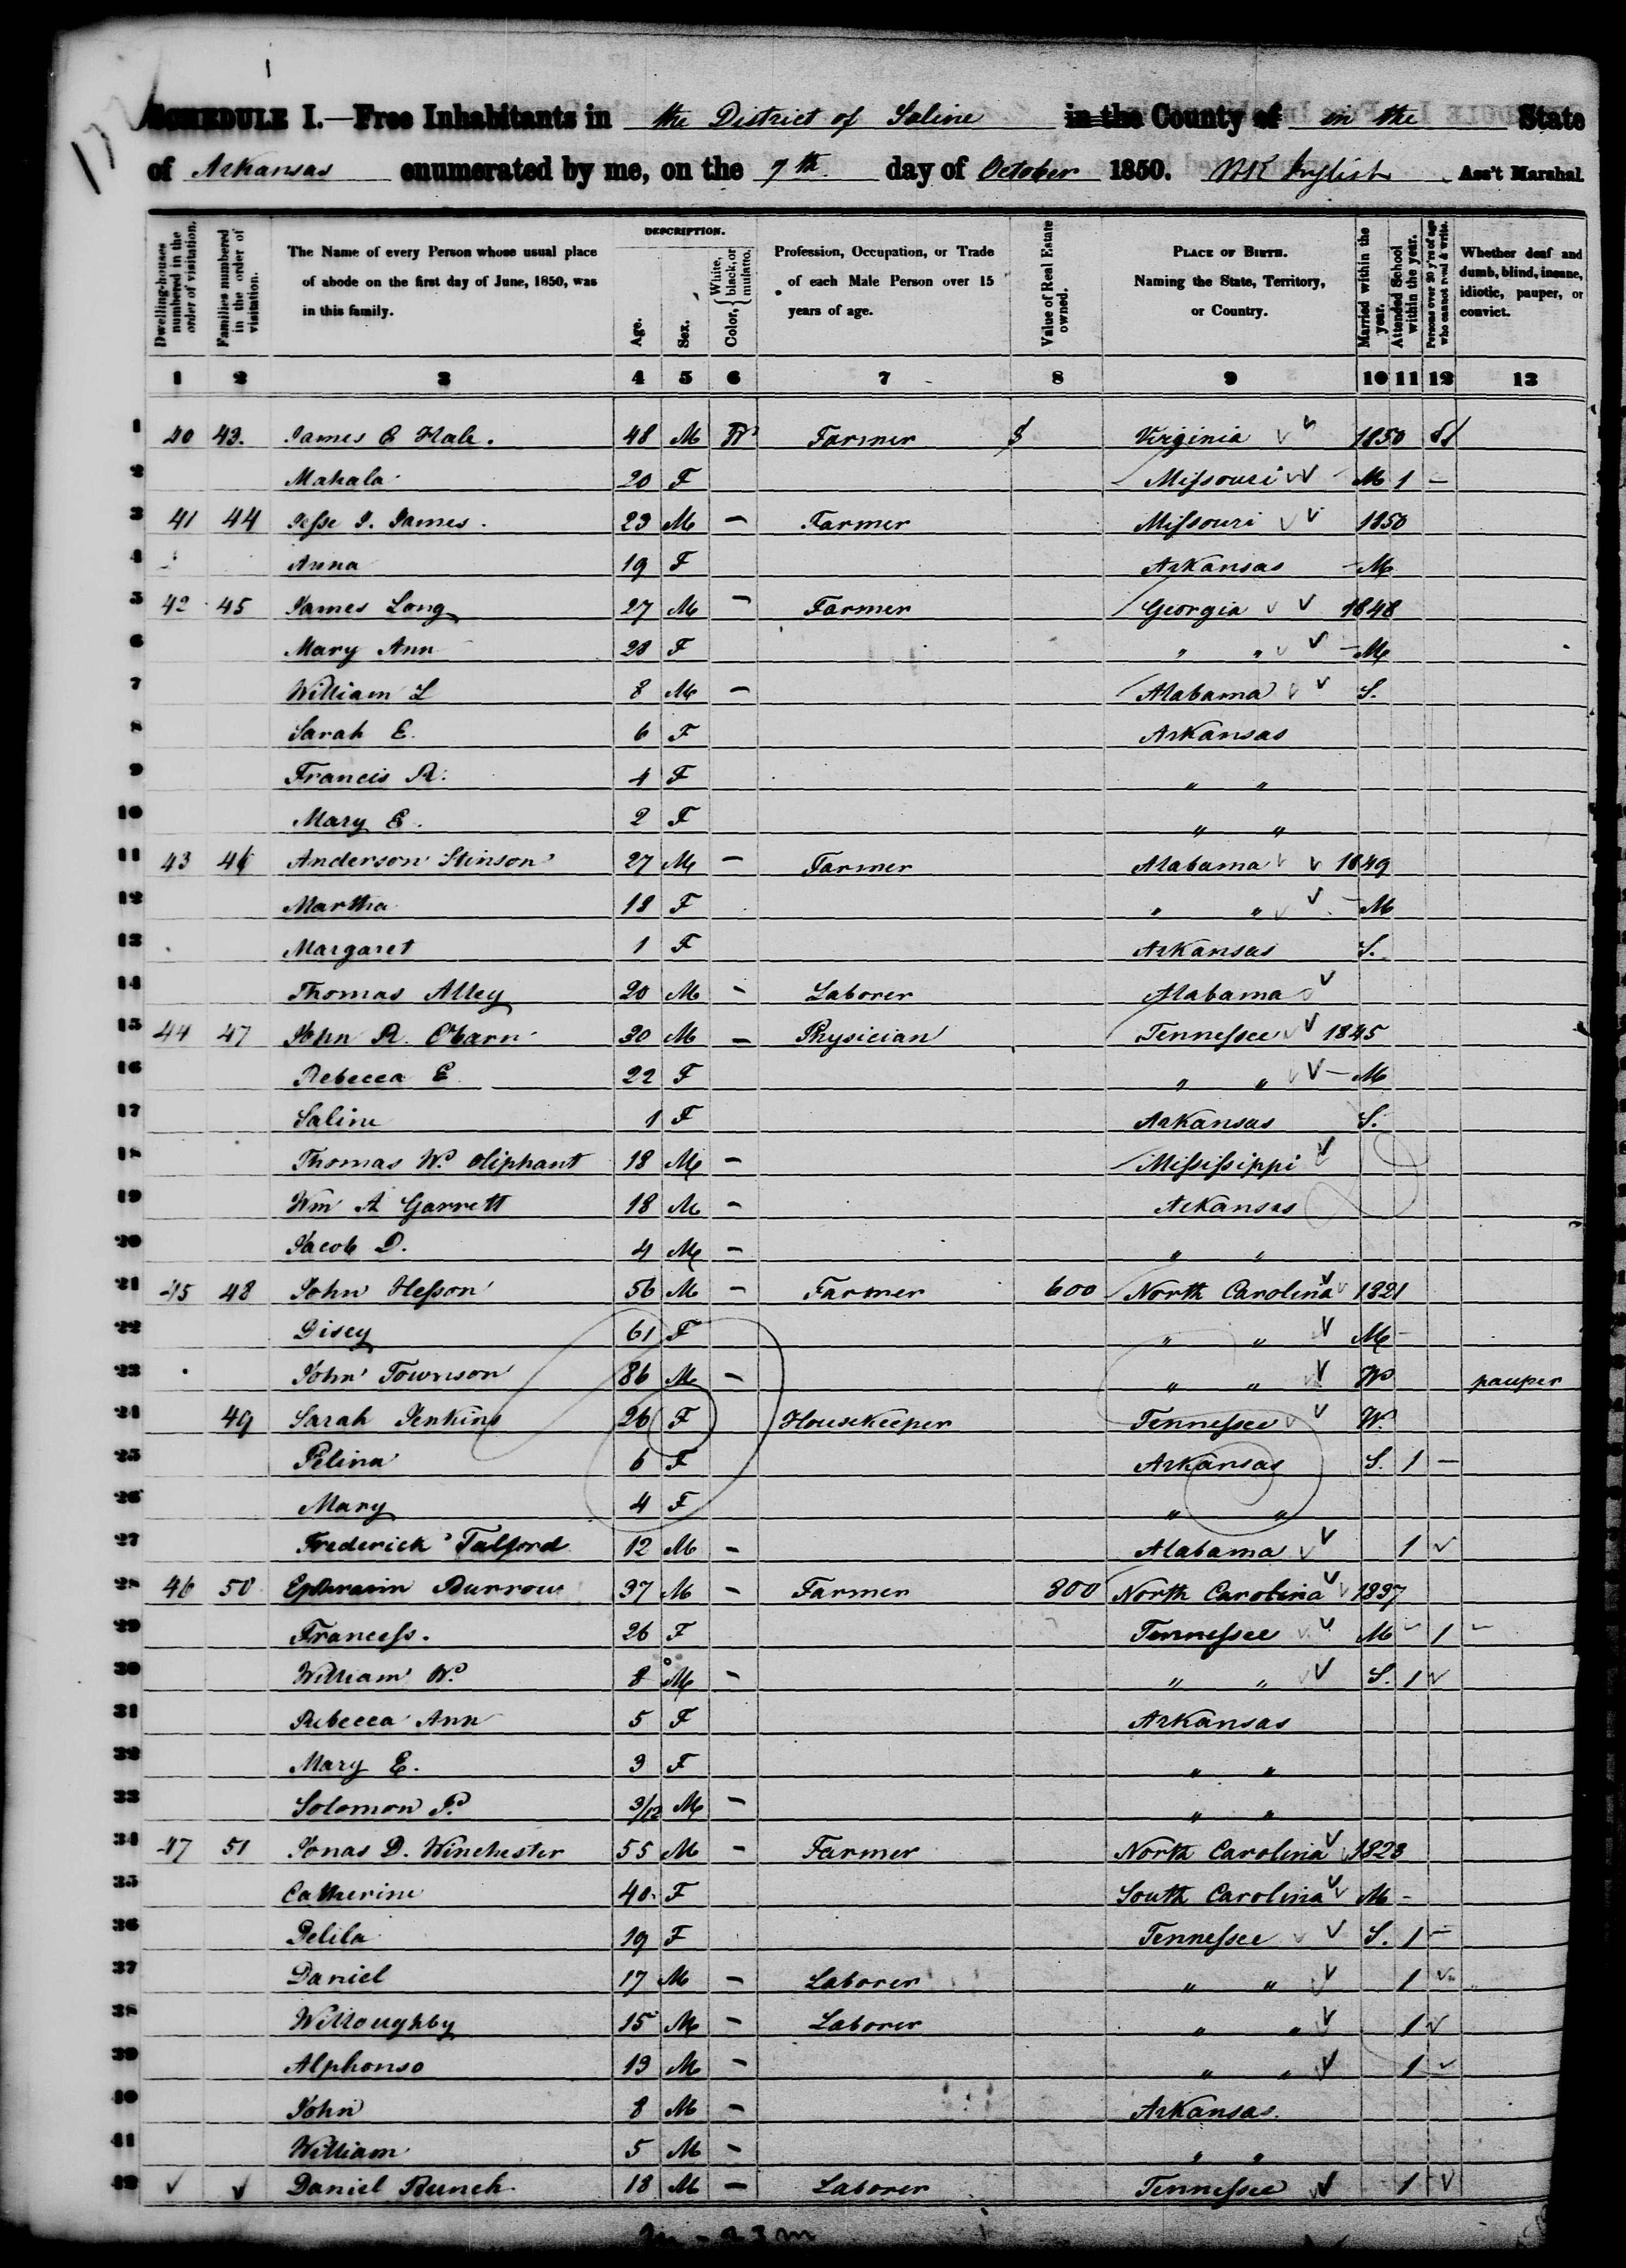 SCHEDULE I.—Free Inhabitants in the District of Saline in the County of in the State
of Arkansas enumerated by me, on the 7th day of October 1850. English Ass't Marshal.
Dwelling-houses numbered in the order of visitation.
Families numbered in the order of visitation.
The Name of every Person whose usual place of abode on the first day of June, 1850, was in this family.
DESCRIPTION.
Age.
Sex.
Color, { White, black, or mulatto.
Profession, Occupation, or Trade of each Male Person over 15 years of age.
Value of Real Estate owned.
PLACE OF BIRTH. Naming the State, Territory, or Country.
Married within the year.
Attended School within the year.
Persons over 20 y'rs of age who cannot read & write.
Whether deaf and dumb, blind, insane, idiotic, pauper, or convict.
1 2 3 4 5 6 7 8 9 10 11 12 13
1 40 43. James E Hale. 48 M Farmer $ Virginia 1850
2 Mahala 20 F Missouri M 1 –
3 41 44 Jesse J. James. 23 M – Farmer Missouri 1850
4 Anna 19 F Arkansas M
5 42 45 James Long 27 M – Farmer Georgia 1848
6 Mary Ann 28 F " " M
7 William L 8 M – Alabama S.
8 Sarah E. 6 F Arkansas
9 Francis R. 4 F " "
10 Mary E. 2 F " "
11 43 46 Anderson Stinson 27 M – Farmer Alabama 1849
12 Martha 18 F " " M
13 Margaret 1 F Arkansas S.
14 Thomas Alley 20 M – Laborer Alabama
15 44 47 John R. Obarr 30 M – Physician Tennessee 1845
16 Rebecca E 22 F " " M
17 Saline 1 F Arkansas S.
18 Thomas W. Oliphant 18 M – Mississippi
19 Wm A Garrett 18 M – Arkansas
20 Jacob D. 4 M – " "
21 45 48 John Hesson 56 M – Farmer 600 North Carolina 1821
22 Disey 61 F " " M
23 John Townson 86 M – " " W pauper
24 49 Sarah Jenkins 26 F Housekeeper Tennessee W.
25 Pelina 6 F Arkansas S. 1 –
26 Mary 4 F " "
27 Frederick Talford 12 M – Alabama 1
28 46 50 Ephraim Burrow 37 M – Farmer 800 North Carolina 1837
29 Francess. 26 F Tennessee M 1
30 William W. 8 M – " " S. 1
31 Rebecca Ann 5 F Arkansas
32 Mary E. 3 F " "
33 Solomon P. 3/12 M – " "
34 47 51 Jonas D. Winchester 55 M – Farmer North Carolina 1828
35 Catherine 40 F South Carolina M
36 Delila 19 F Tennessee S. 1 –
37 Daniel 17 M – Laborer " " 1
38 Willoughby 15 M – Laborer " " 1
39 Alphonso 13 M – " " 1
40 John 8 M – Arkansas.
41 William 5 M – " "
42 Daniel Bunch 18 M – Laborer Tennessee 1